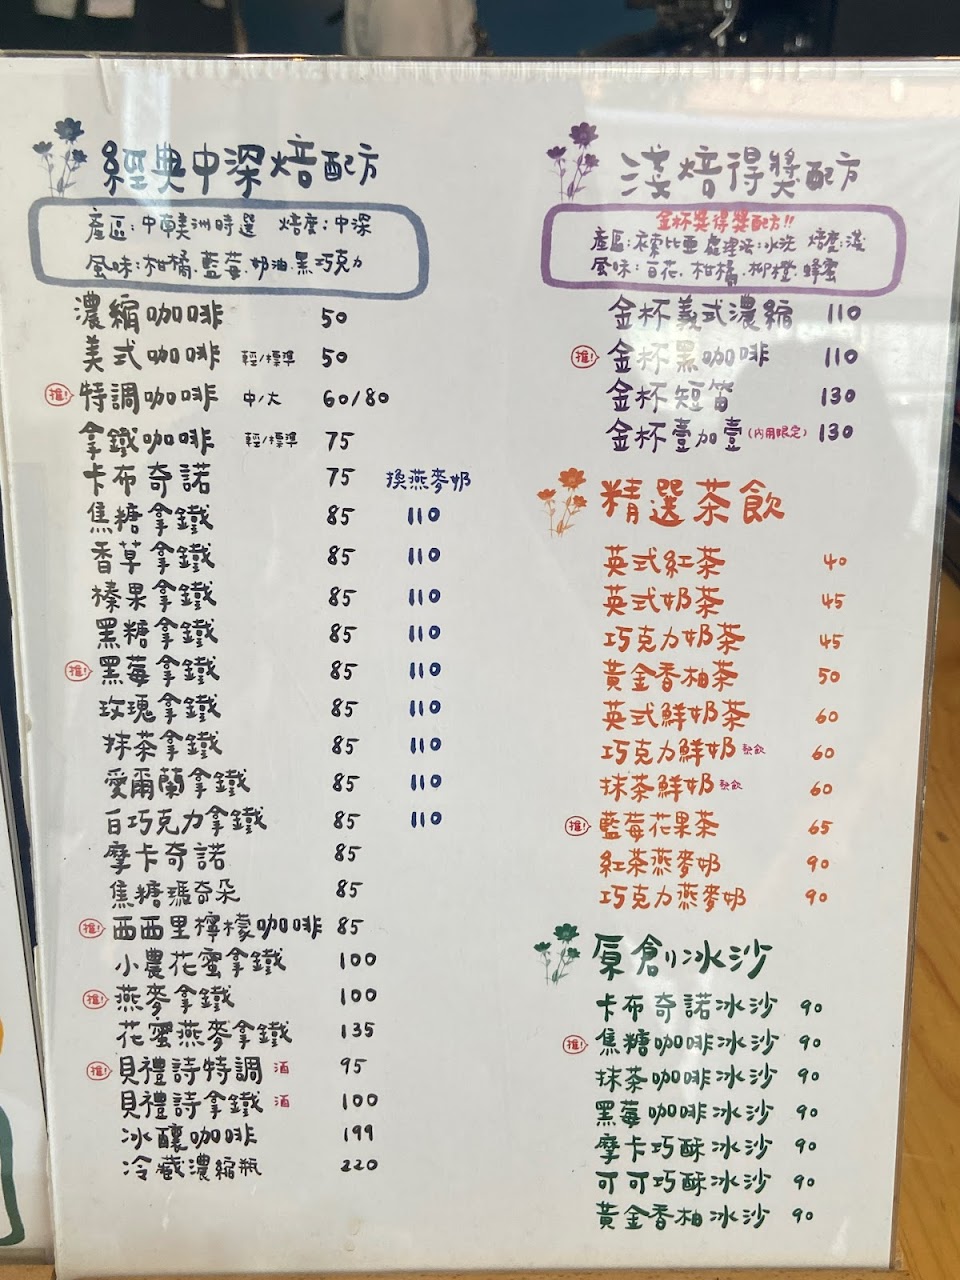 經典中深焙配方
產區:中南美洲時選 焙度:中深
風味:柑橘.藍莓.奶油.黑巧克力
濃縮咖啡 50
美式咖啡 輕/標準 50
推! 特調咖啡 中/大 60/80
拿鐵咖啡 輕/標準 75
卡布奇諾 75 換燕麥奶
焦糖拿鐵 85 110
香草拿鐵 85 110
榛果拿鐵 85 110
黑糖拿鐵 85 110
推! 黑莓拿鐵 85 110
玫瑰拿鐵 85 110
抹茶拿鐵 85 110
愛爾蘭拿鐵 85 110
白巧克力拿鐵 85 110
摩卡奇諾 85
焦糖瑪奇朵 85
推! 西西里檸檬咖啡 85
小農花蜜拿鐵 100
推! 燕麥拿鐵 100
花蜜燕麥拿鐵 135
推! 貝禮詩特調 酒 95
貝禮詩拿鐵 酒 100
冰釀咖啡 199
冷藏濃縮瓶 220
淺焙得獎配方
金杯獎得獎配方!!
產區:衣索比亞 處理法:水洗 焙度:淺
風味:百花.柑橘.柳橙.蜂蜜
金杯義式濃縮 110
推! 金杯黑咖啡 110
金杯短笛 130
金杯壹加壹(內用限定) 130
精選茶飲
英式紅茶 40
英式奶茶 45
巧克力奶茶 45
黃金香柚茶 50
英式鮮奶茶 60
巧克力鮮奶 熱飲 60
抹茶鮮奶 熱飲 60
推! 藍莓花果茶 65
紅茶燕麥奶 90
巧克力燕麥奶 90
原創冰沙
卡布奇諾冰沙 90
推! 焦糖咖啡冰沙 90
抹茶咖啡冰沙 90
黑莓咖啡冰沙 90
摩卡巧酥冰沙 90
可可巧酥冰沙 90
黃金香柚冰沙 90